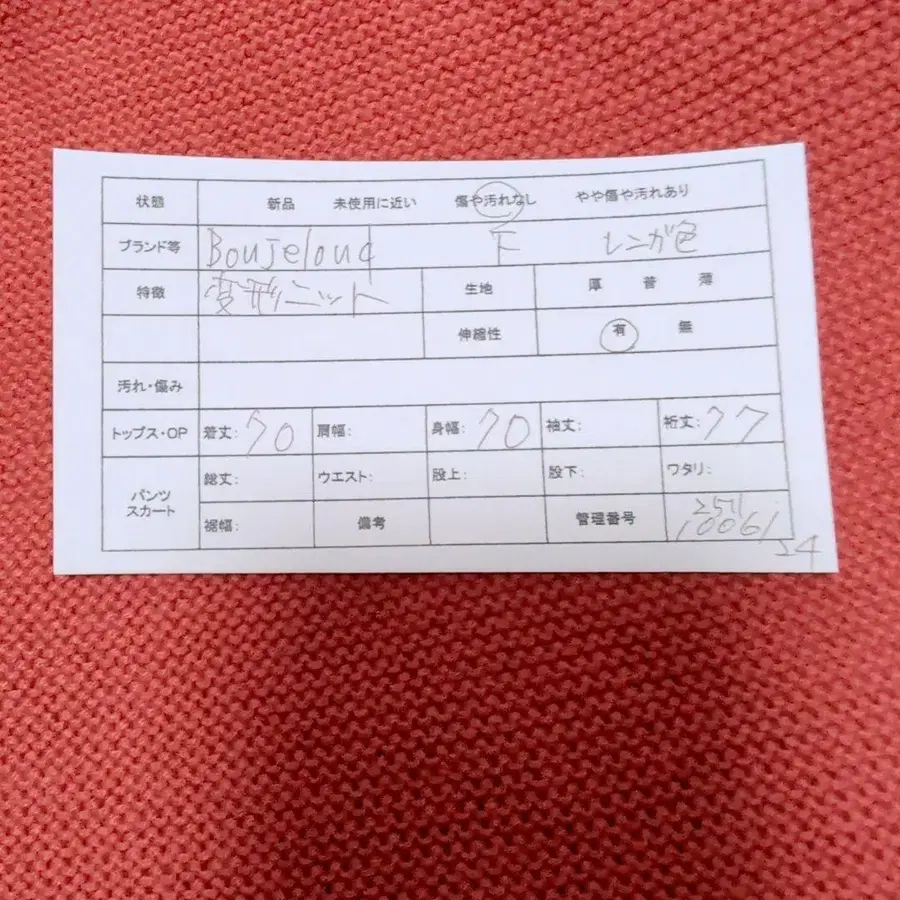 状態 新品 未使用に近い 傷や汚れなし やや傷や汚れあり
ブランド等 Boujeloud 下 レンガ色
特徴 変形ニット 生地 厚 普 薄
伸縮性 有 無
汚れ・傷み
トップス・OP 着丈: 70 肩幅: 身幅: 70 袖丈: 裄丈: 77
パンツ スカート 総丈: ウエスト: 股上: 股下: ワタリ:
裾幅: 備考 管理番号 251
10061
24